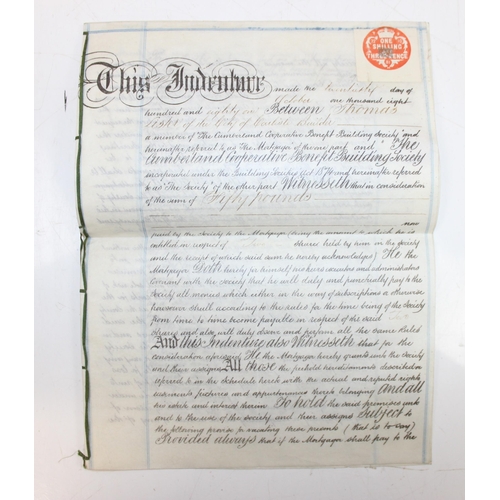 ONE
SHILLING
&
THREEPENCE
This Indenture made the twentieth day of
October one thousand eight
hundred and eighty Between Thomas
of the City of
a member of "The Cumberland Cooperative Benefit Building Society" and
hereinafter referred to as "The Mortgagor" of the one part and "The
Cumberland Cooperative Benefit Building Society
incorporated under the Building Societies Act 1874 and hereinafter referred
to as "The Society" of the other part Witnesseth that in consideration
of the sum of Fifty Pounds
now
paid by the Society to the Mortgagor (being the amount to which he is
entitled in respect of shares held by him in the Society
and the receipt of which said sum he hereby acknowledges) He the
Mortgagor Doth hereby for himself his heirs executors and administrators
Covenant with the Society that he will duly and punctually pay to the
Society all moneys which either in the way of subscriptions or otherwise
howsoever shall according to the rules for the time being of the Society
from time to time become payable in respect of the said
shares and also will duly observe and perform all the same Rules
And this Indenture also Witnesseth that for the
consideration aforesaid He the Mortgagor hereby grants unto the Society
and their assigns All those the freehold hereditaments described or
referred to in the Schedule hereto with the actual and reputed rights
easements fixtures and appurtenances thereto belonging And all
his estate and interest therein To hold the said premises unto
and to the use of the Society and their assigns Subject to
the following proviso for vacating these presents (that is to say)
Provided always that if the Mortgagor shall pay to the